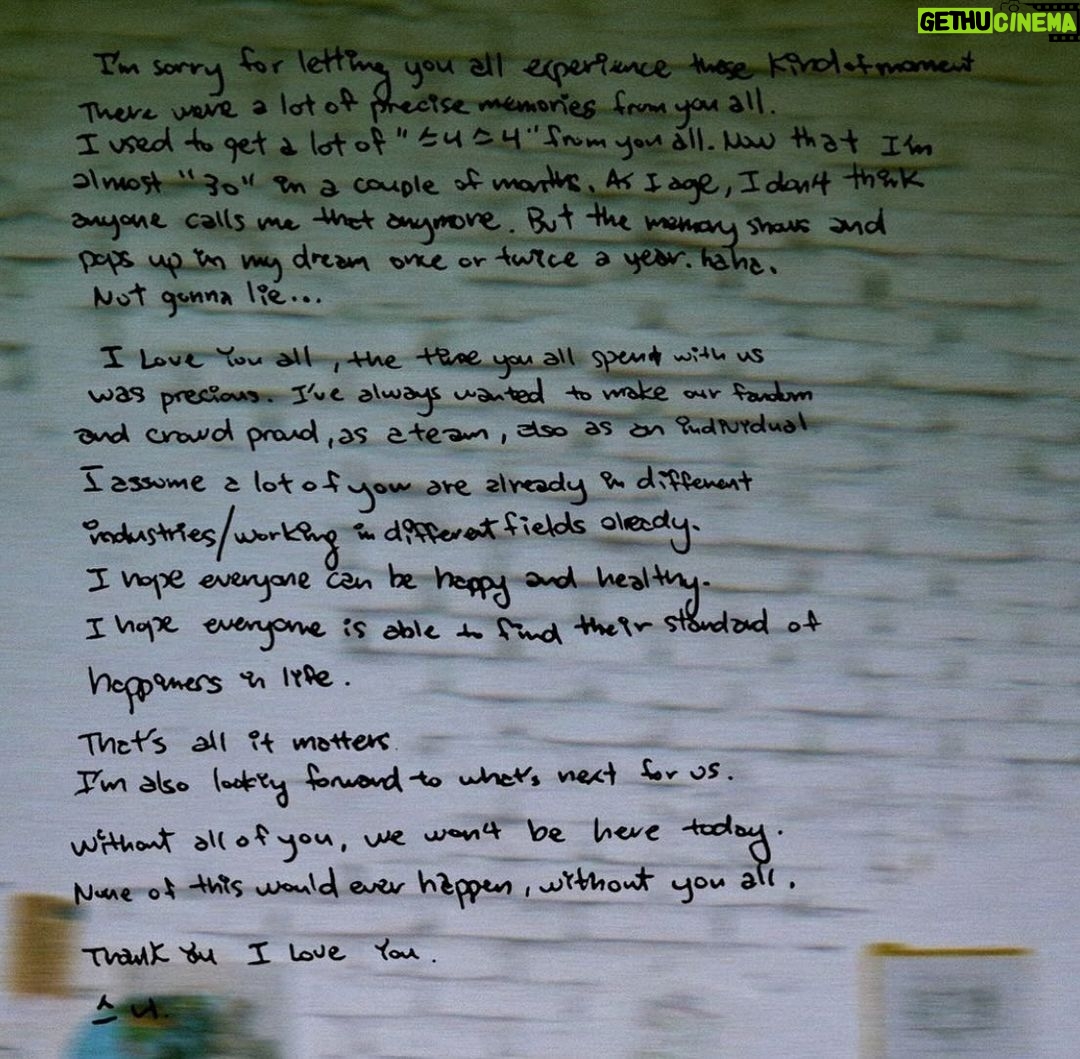 GETHUCINEMA
I'm sorry for letting you all experience these kind of moment
There were a lot of precise memories from you all.
I used to get a lot of "스너스너" from you all. Now that I'm
almost "30" in a couple of months. As I age, I don't think
anyone calls me that anymore. But the memory shows and
pops up in my dream once or twice a year. haha.
Not gonna lie...
I Love You all, the time you all spent with us
was precious. I've always wanted to make our fandom
and crowd proud, as a team, also as an individual
I assume a lot of you are already in different
industries/working in different fields already.
I hope everyone can be happy and healthy.
I hope everyone is able to find their standard of
happiness in life.
That's all it matters.
I'm also looking forward to what's next for us.
Without all of you, we won't be here today.
None of this would ever happen, without you all.
Thank You I Love You.
스너.